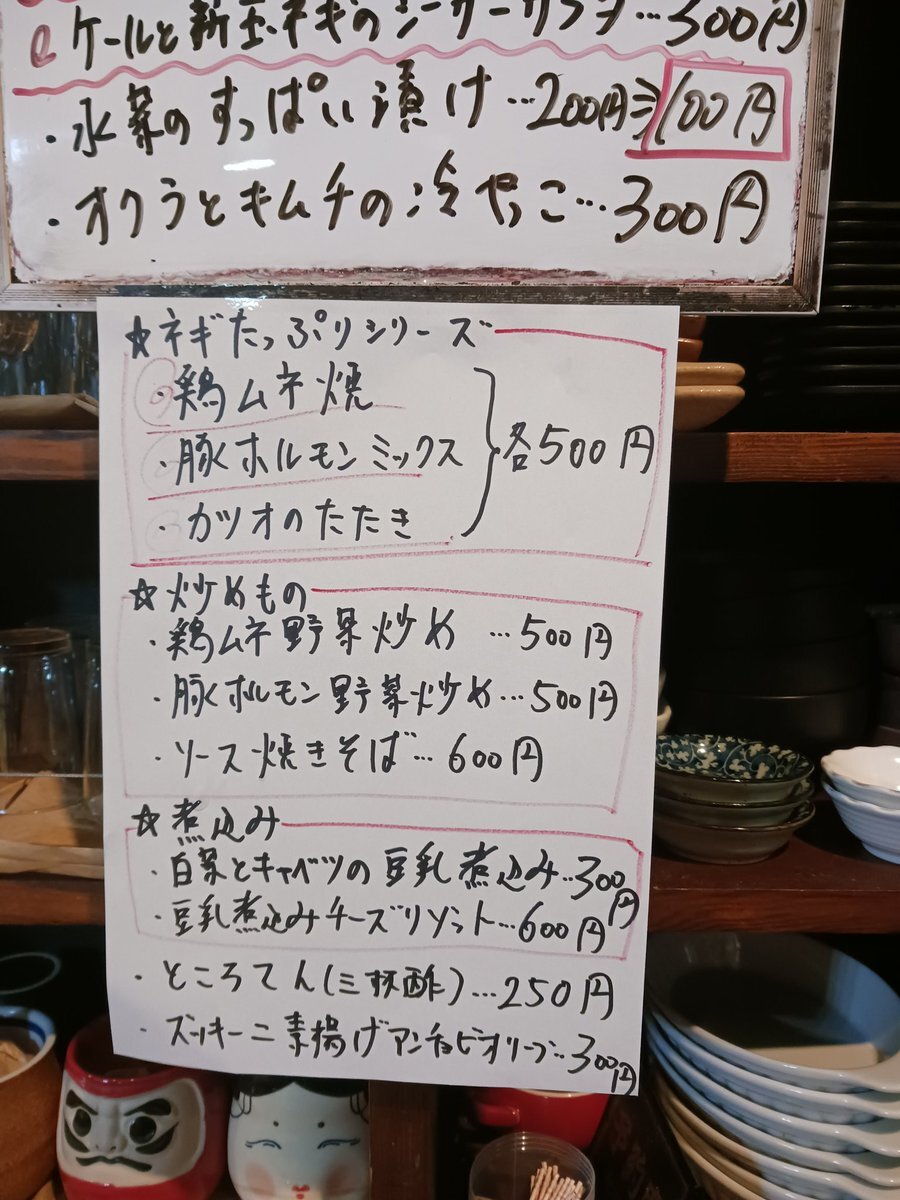 ケールと新玉ネギのシーザーサラダ…300円
・水菜のすっぱい漬け…200円⇒100円
・オクラとキムチの冷やっこ…300円
☆ネギたっぷりシリーズ
・鶏ムネ焼
・豚ホルモンミックス
・カツオのたたき
各500円
☆炒めもの
・鶏ムネ野菜炒め …500円
・豚ホルモン野菜炒め…500円
・ソース焼きそば…600円
☆煮込み
・白菜とキャベツの豆乳煮込み…300円
・豆乳煮込みチーズリゾット…600円
・ところてん(三杯酢)…250円
・ズッキーニ素揚げアンチョビオリーブ…300円